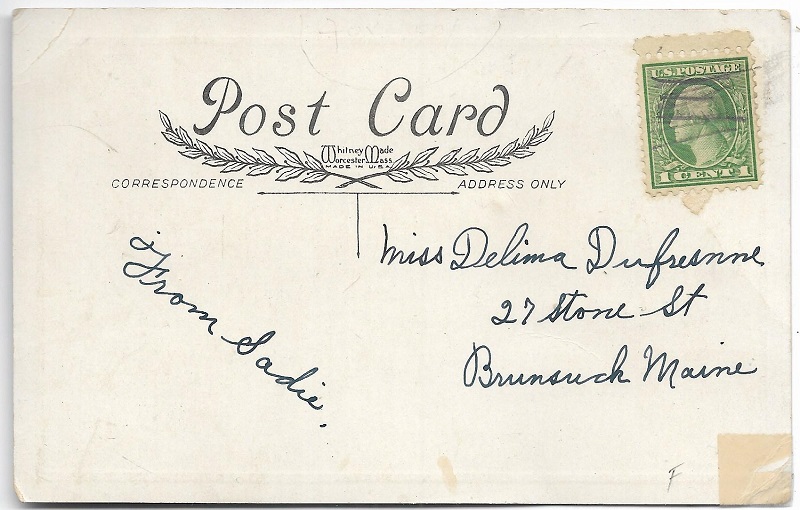 Post Card
Whitney Made
Worcester, Mass
MADE IN U.S.A.
CORRESPONDENCE
ADDRESS ONLY
U.S. POSTAGE
1 CENT 1
Miss Delima Dufresnne
27 Stone St
Brunsuck Maine
From Sadie.
F